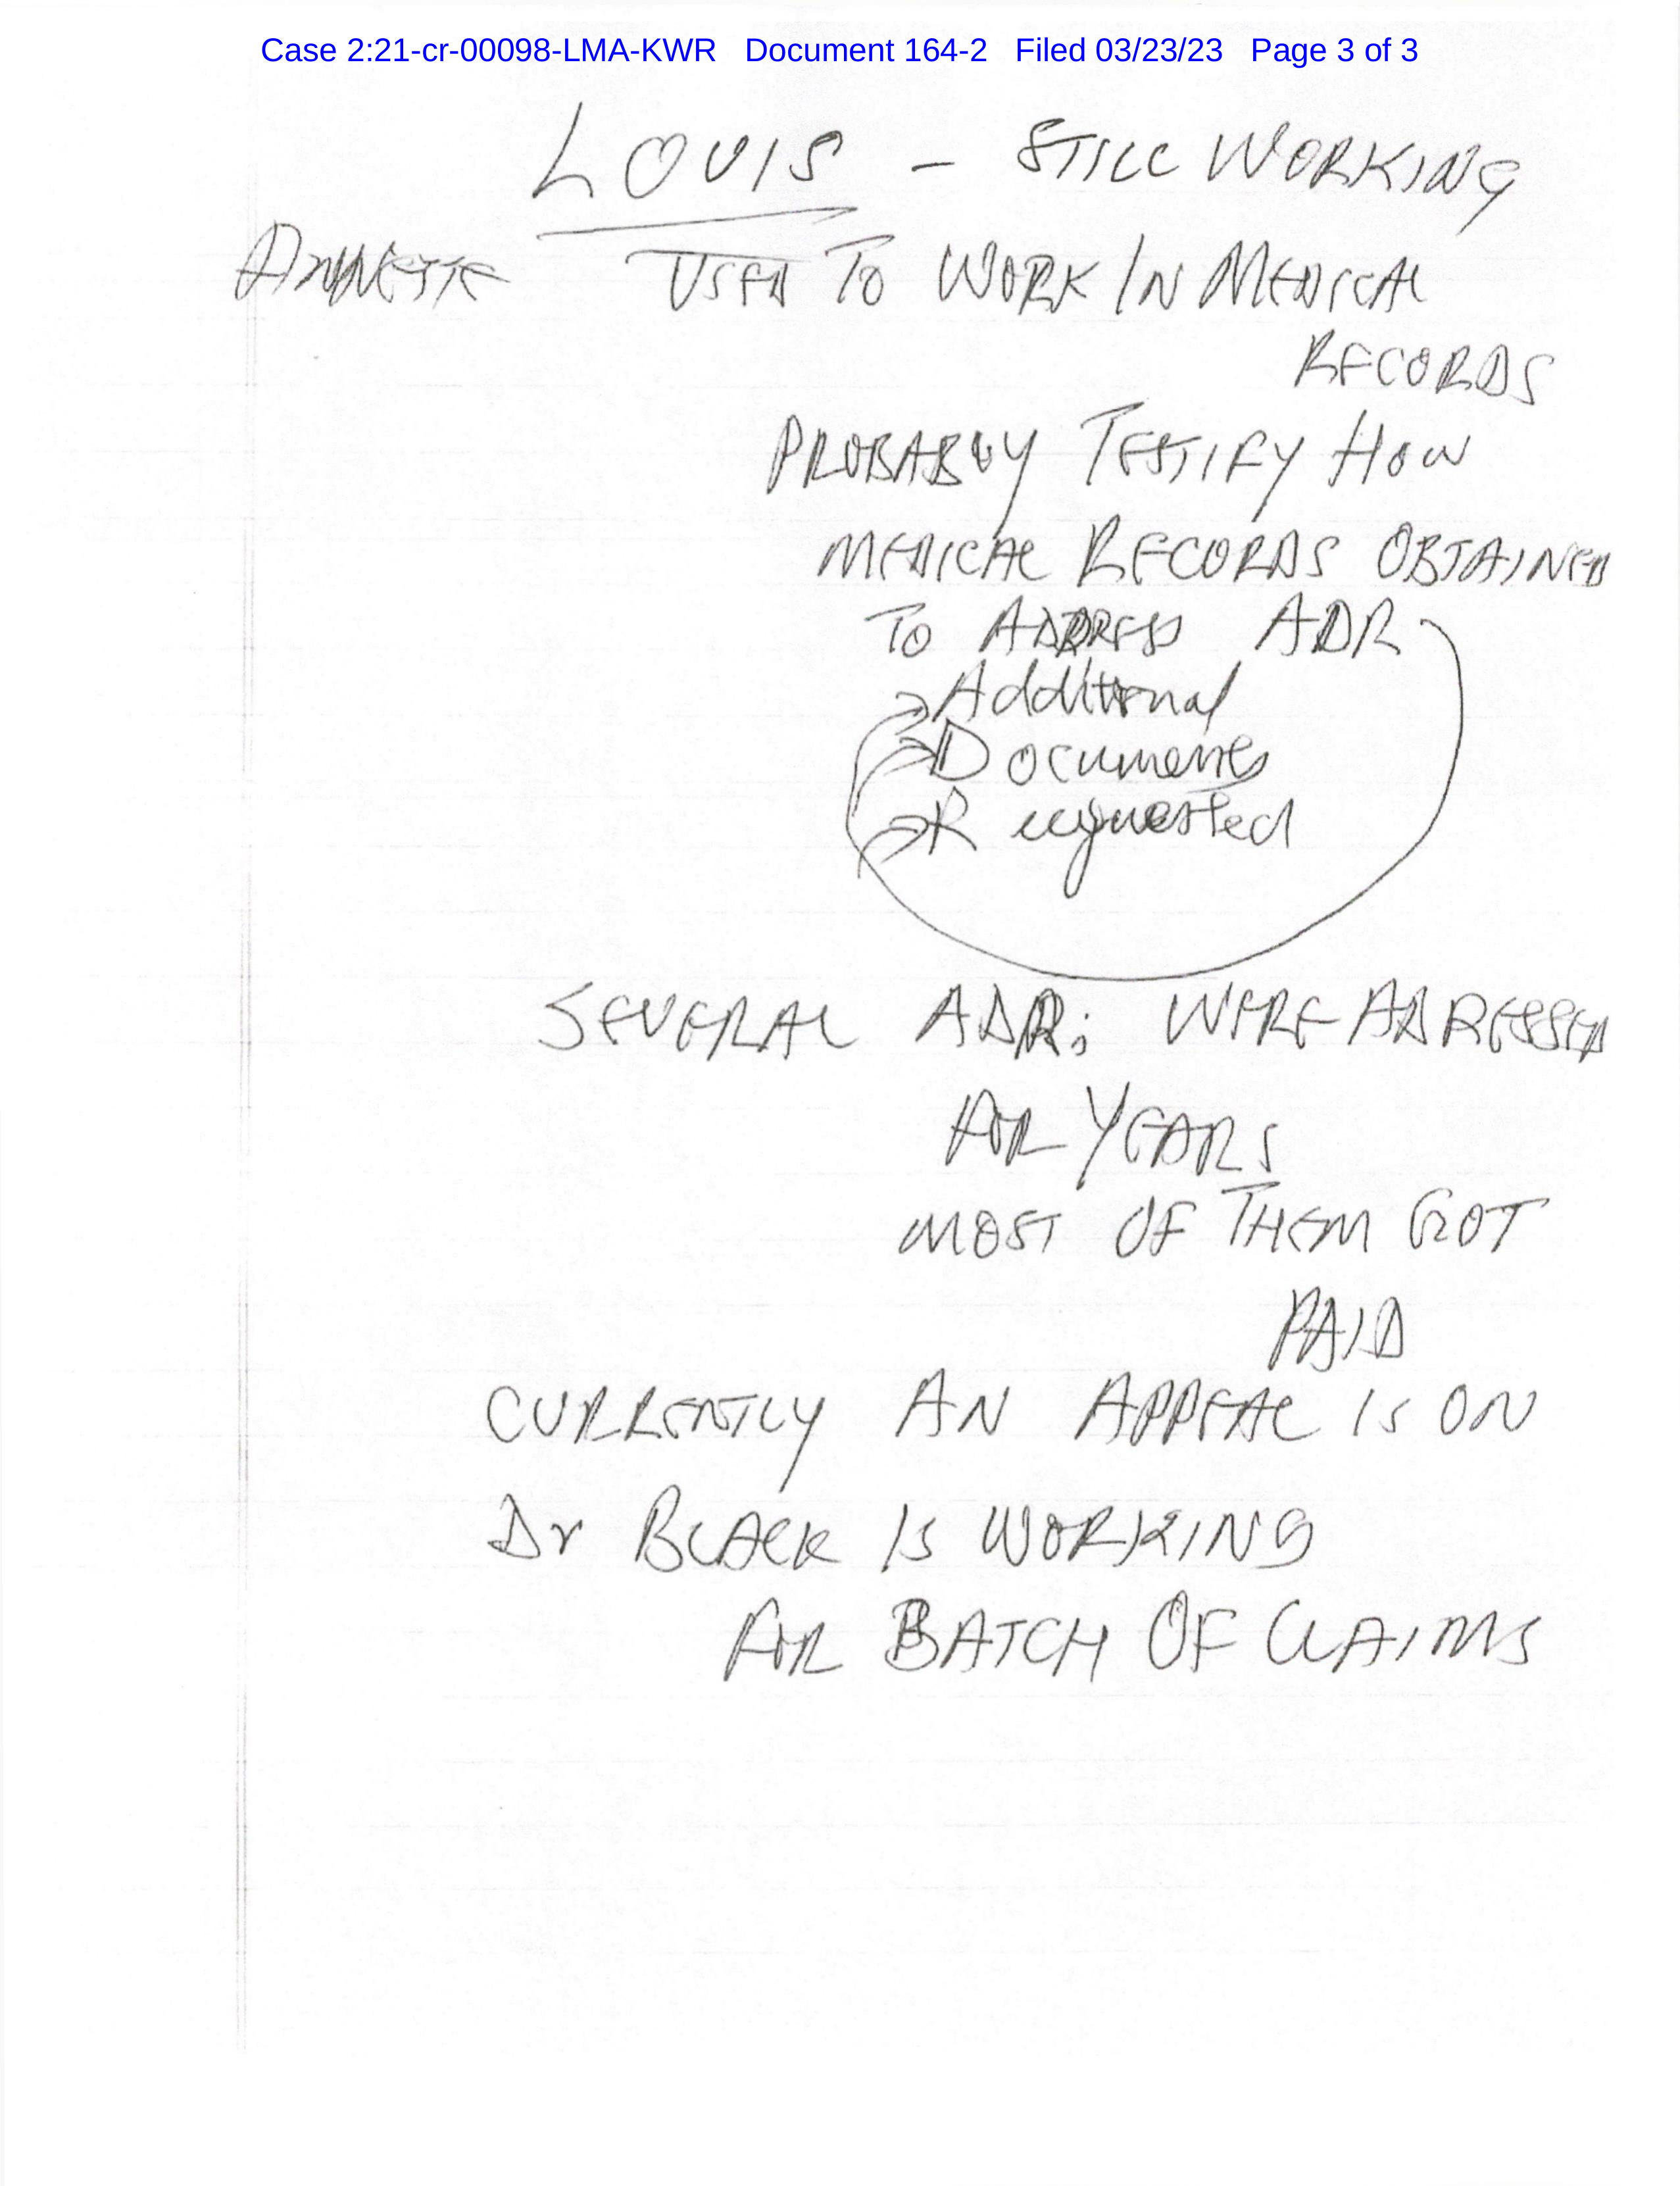 Case 2:21-cr-00098-LMA-KWR Document 164-2 Filed 03/23/23 Page 3 of 3
LOUIS – STILL WORKING
ANNETTE USED TO WORK IN MEDICAL
RECORDS
PROBABLY TESTIFY HOW
MEDICAL RECORDS OBTAINED
TO ADDRESS ADR
Additional
Documents
Requested
SEVERAL ADRs WERE ADRESSED
FOR YEARS
MOST OF THEM GOT
PAID
CURRENTLY AN APPEAL IS ON
Dr BLACK IS WORKING
FOR BATCH OF CLAIMS